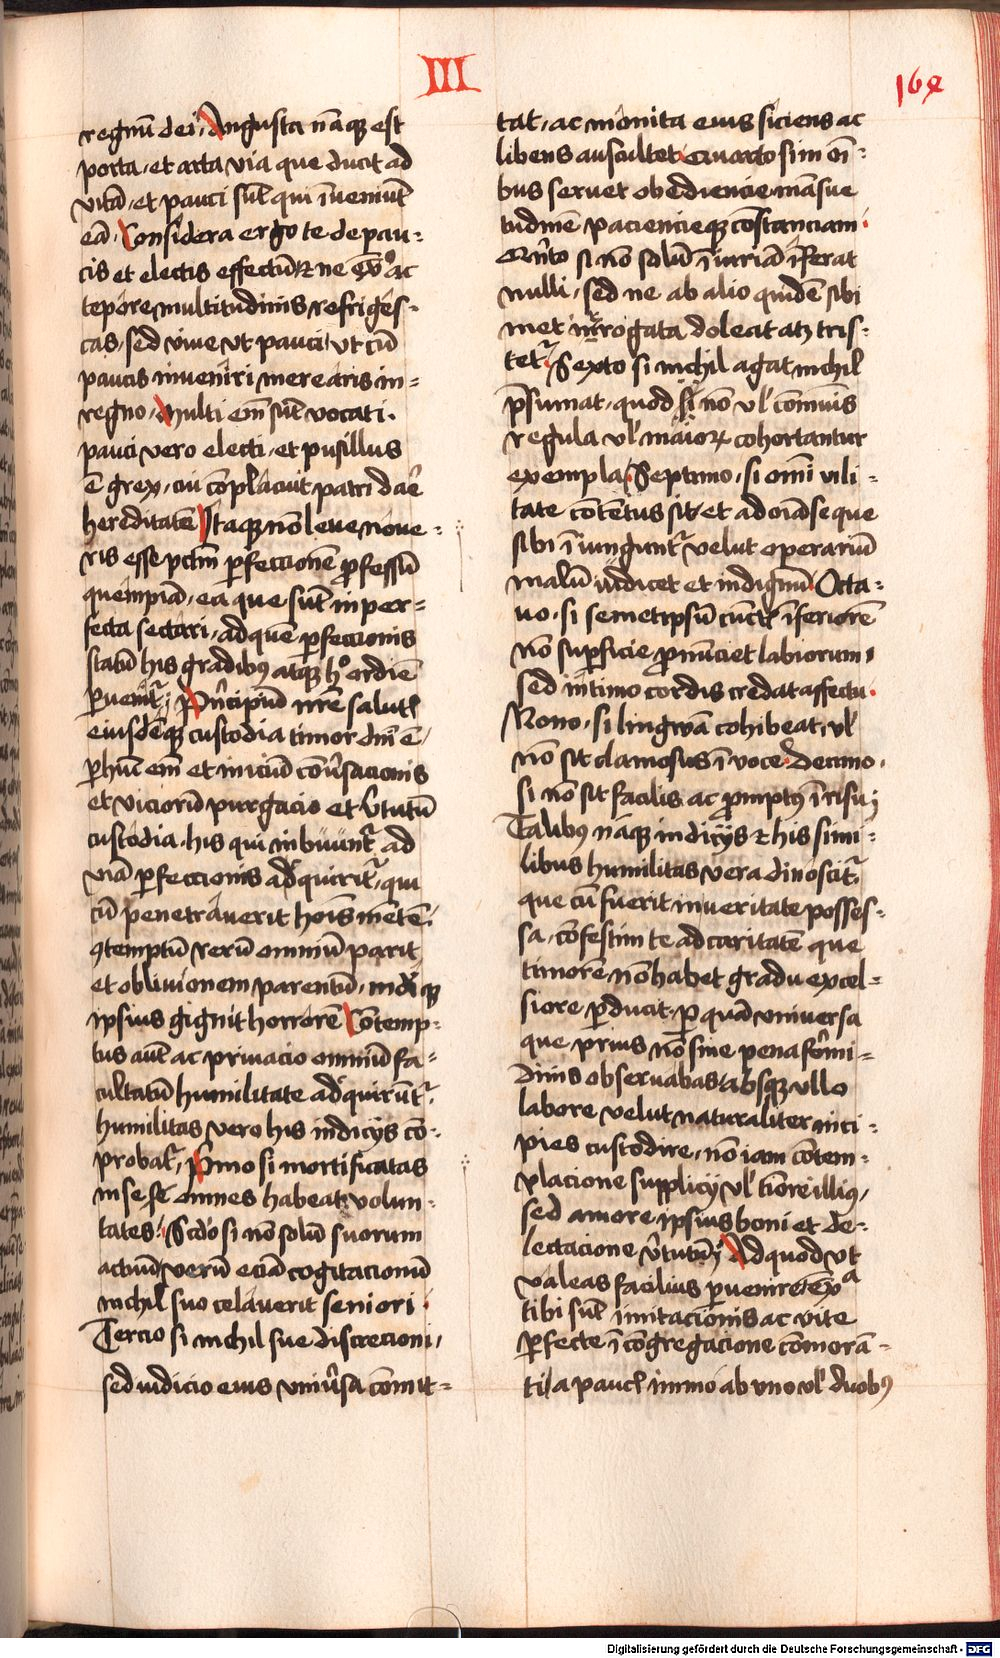 III
164
regnū dei. Angusta nāq̃ est
porta, et arta via que ducit ad
vitā, et pauci sūt qui īveniūt
eā. Considera ergo te de pau-
cis et electis effectū, et ne exºº ac
tepore multitudinis refriges-
cas, sed vive ut pauci, ut cū
paucis inveniri merearis in-
regno. Multi em̄ sūt vocati.
pauci vero electi, et pusillus
ē grex, cui cōplacuit patri daē
hereditatē. Itaq̃ nō leve nove-
ris esse pctm̄ perfeccionē professū
quempiā, ea que sūt inper-
fecta sectari, ad quē perfeccionis
statū his gradibꝰ atq̃ hº ordiē
pervenit̃. Principiū nr̄e salutꝭ
eiusdēq̃ custodia timor dn̄i ē.
per hunc em̄ et iniciū cōversacionis
et viciorū purgacio et virtutū
custodia his qui inbuūnt̃ ad
viā perfeccionis adquirit̃, qui
cū penetraverit hoīs mētē.
ꝯtemptū rerū omniū parit
et oblivionem parentū, mūdiq̃
ipsius gignit horrorē. Contemp-
tus aut̄ ac privacio omniū fa-
cultatū humilitate adquirūt̃.
humilitas vero his indicijs cō-
probat̃, Primo si mortificatas
in sese omnes habeat volun-
tates. Scd̄o si nō solū suorum
actuū, verū eciā cogitacionū
nichil suo celaverit seniori.
Tercio si nichil sue discrecioni,
sed iudicio eius universa cōmit-
tat, ac monita eius siciens ac
libens auscultet. Quarto si in oī-
bus servet obediencie, māsue
tudinē paciencieq̃ cōstanciam.
Qnīto si nō solū īiuriā īferat
nulli, sed ne ab alio quidē sibi
met irrogata doleat atq̃ tris-
tet̃. Sexto si nichil agat, nichil
p̄sumat, quod nō vl̄ cōmuis
regula vl̄ maioꝝ cohortantur
exempla. Septimo, si omī vili-
tate cōtētus sit, et ad oīa se que
sibi īiungunt̃ velut operariū
malū iudicet et indignū. Octa-
vo, si semetipsū cūctꝭ īferiorē
nō superficie pronūciet labiorum,
sed intimo cordis credat affectu.
Nono, si lingwā cohibeat, vl̄
nō sit clamosus ī voce. Decimo.
si nō sit facilis ac promptꝰ ī risu;
Talibꝰ nāq̃ indicijs et his simi-
libus humilitas vera dinoscit̃.
que cū fuerit in veritate posses-
sa, cōfestim te ad caritatē que
timorē nō habet gradu excel-
siore perducit. Per quā universa
que prius nō sine pena formi-
dinis observabas, absq̃ ullo
labore velut naturaliter inci-
pies custodire, nō iam cōtem-
placione supplicij vl̄ tiōre illiꝰ,
sed amore ipsius boni et de-
lectacione virtutū; Ad quod ut
valeas facilius pervenire, exa
tibi sūt imitacionis ac vite
perfecte ī cōgregacione cōmorā-
ti, a paucꝭ immo ab uno vl̄ duobꝰ
Digitalisierung gefördert durch die Deutsche Forschungsgemeinschaft - DFG